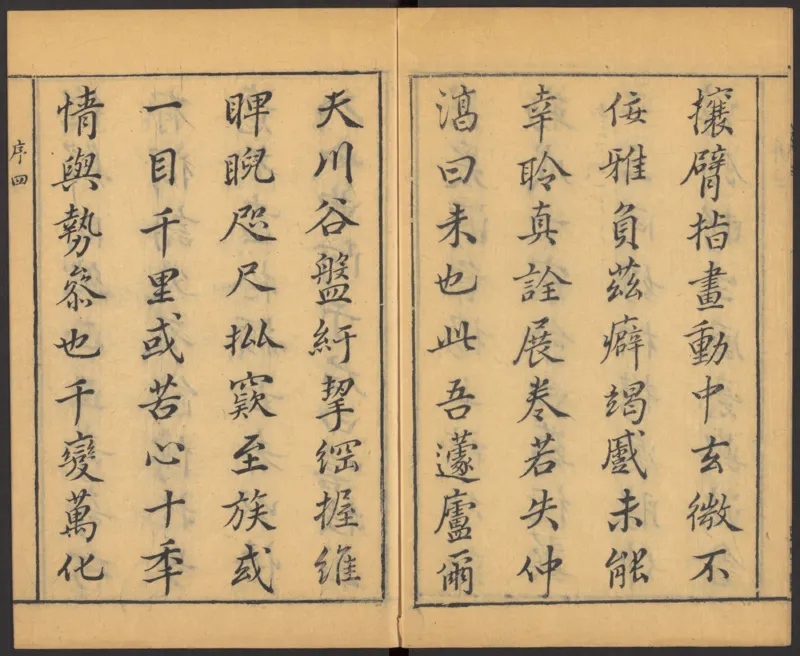 攘臂指畫動中玄微不
佞雅負茲癖竭蹙未能
幸聆真詮展卷若失仲
澔曰未也此吾蘧廬爾
夫川谷盤紆挈綱握維
睥睨咫尺批窾至族或
一目千里或苦心十年
情與勢叅也千變萬化
序四